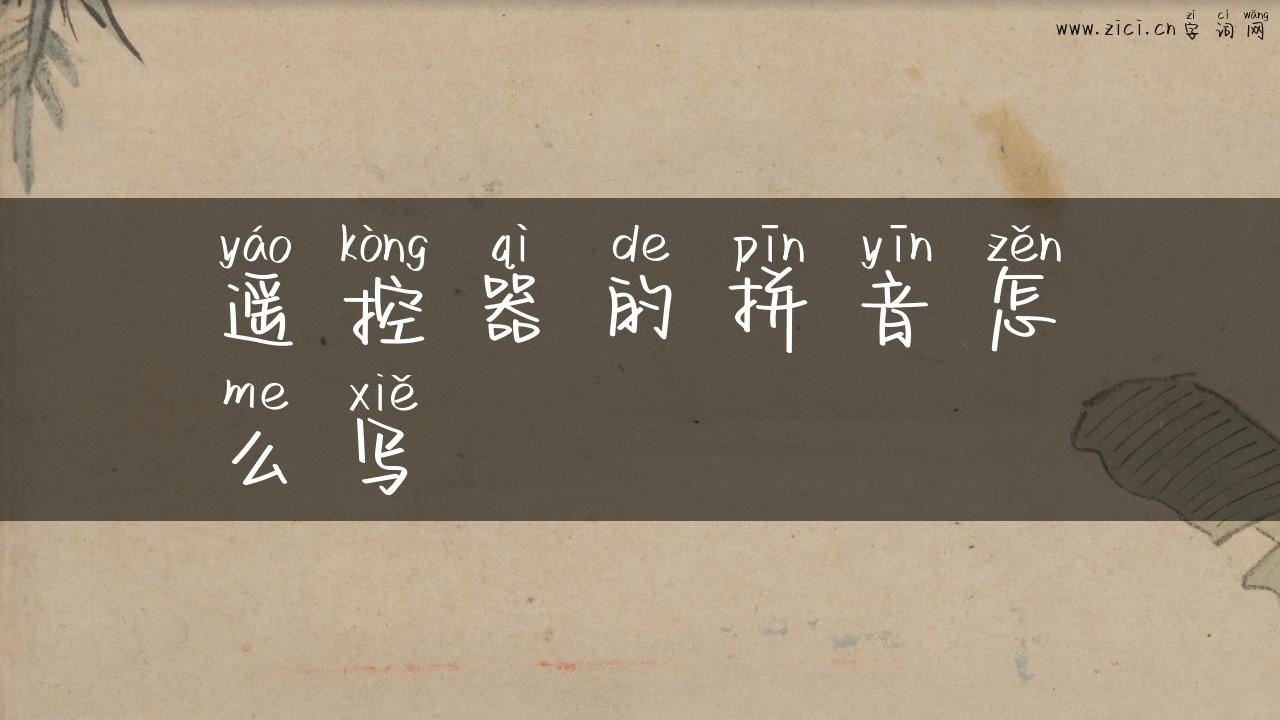 zì cí wǎng
www.zici.cn 字词网
yáo kòng qì de pīn yīn zěn
遥控器的拼音怎
me xiě
么写